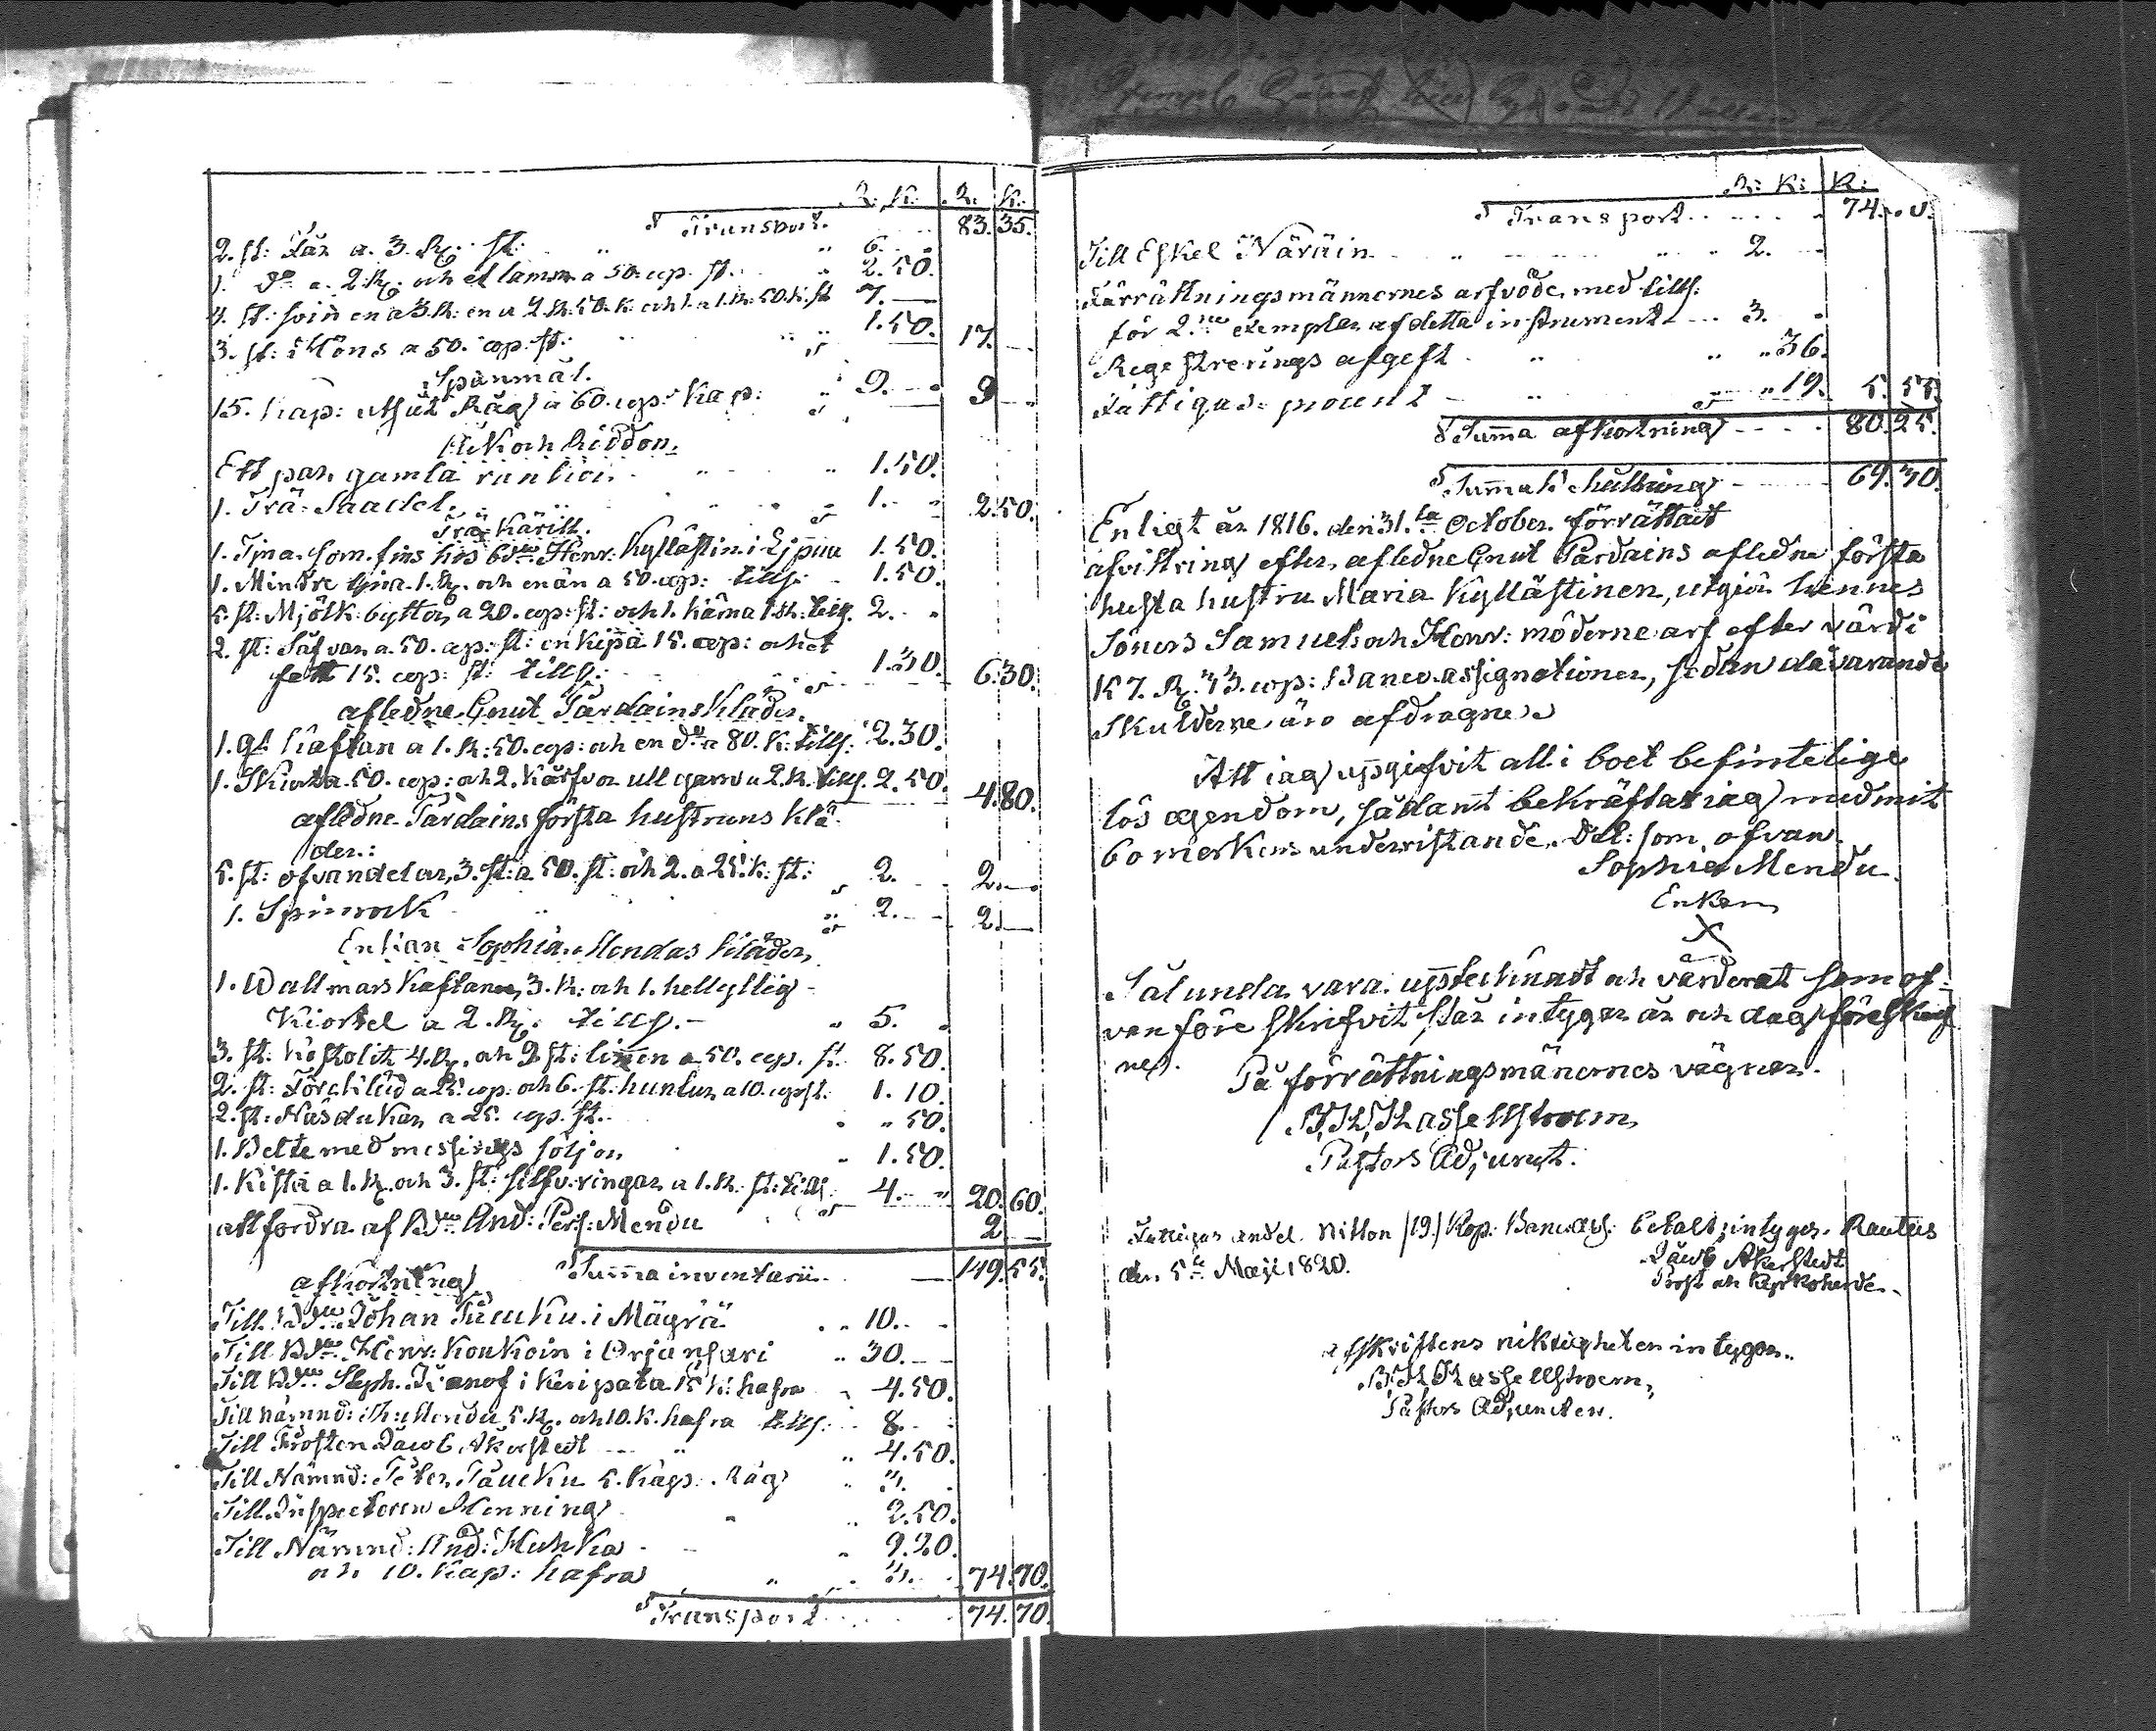 R: K: R. K:
Transport. 83. 35.
2. st: Får a. 3. R. st: " " 6. "
1. do a. 2 R. och et lamm a 50. cop. st. " 2. 50.
4. st: svin en a 3 R. en a 2 R. 50. K. och 1. a 1. R. 50. K. st 7. —
3. st: Höns a 50. cop. st: " " 1. 50. 17. —
Spanmål.
15. kap: utsåt Råg a 60. cop: kap: " 9. — 9 —
Åk och Riddon.
Ett par gamla " " 1. 50.
1. Trä-Saadel. " 1. — 2. 50.
Trä Käril.
1. Tina som fins hos Bdn Henr: Kyllästin i 1. 50.
1. Mindre tina 1. R. och en än a 50. cop: tills: 1. 50.
5. st: Mjölk byttor a 20. cop: st: och 1. kärna 1 R. tills. 2. "
2. st: Såfvar a. 50. cop: st: en kippa 15. cop: och et
fatt 15. cop: st: tills: 1. 30. 6. 30.
afledne Gnut Pärdains Kläder.
1. gl. kaftan a 1. R: 50. cop: och en do a 80. K. tills: 2. 30.
1. Skiorta 50. cop: och 2. kärfvor ull garn a 2. R. tills. 2. 50. 4. 80.
afledne Pärdains första hustruns klä-
der.:
5. st: ofvandelar, 3. st: a 50. st: och 2. a 25. K. st: 2. 2. —
1. Spinrock " 2. — 2. —
Enkian Sophia Mendas Kläder
1. Wallmars Kaftan, 3. R: och 1. hellyllig
Kiortel a 2. R: tills. — " 5. "
3. st: 4. R. och 9 st: linnen a 50. cop. st. 8. 50.
2. st: Förekläd a 25. cop: och 6. st. huntur a 10. cop st: 1. 10.
2. st: Näsdukar a 25. cop. st.. " 50.
1. Bälte med messings söljor " 1. 50.
1. Kista a 1. R. och 3. st: silfv. ringar a 1. R. st: tills 4. — " 20. 60.
att fordra af Bdn And: Pers: Mendu 2 —
Summa inventarii — 149. 55.
afkortning
Till Bdn Johan Päuku i Mägrä " 10. —
Till Bdn Henr: Koukoin i Orjansari " 30. —
Till Bdn Steph. Ivanof i Keripata 15 K: hafra " 4. 50.
Till nämnd: Mendu 5. R. och 10. K. hafra tills: 8. —
Till Prosten Jacob Åkerstedt — " " 4. 50.
Till Nämnd: Peter Päuku 5. Kap: Råg " 3. "
Till Inspectoren Menning " " 2. 50.
Till Nämnd: And: Huhka — " 9. 20.
och 10. Kap: hafra " " 3. 74. 70.
Transport 74. 70.
R: K: R:
Transport 74.
Till Eskel Näräin " " 2. —
Förrättningsmännernes arfvode med tills.
för 2.ne exemplar af detta instrument — 3. "
Regestrerings afgeft " " " 36.
Fattigas procent — " " 19. 5. 55.
Summa afkortning — 80. 25.
Summa behållning — 69. 30.
Enligt år 1816. den 31.ta October förrättadt
afvittring efter afledne Gnut Pärdains afledne första
husta hustru Maria Kyllästinen, utgiör hennes
Söners Samuels och Henr: möderne arf efter värdi
K 7. R. 33. cop: Banco assignationer, sedan då varande
Skulderne äro afdragne.
Att jag uppgifvit all i boet befintelige
lös egendom, sådant bekräftar jag med mit
bomerkens underristande. Dat: som ofvan.
Sophia Mendu
Enkan
X
Sålunda vara upptecknadt och värderat som of-
van före skrifvit står intygar år och dag förestå
nes. På förrättningsmänernes vägnar.
Hassellstroem
Pastors Adjunct.
Fattigas andel Nitton /19./ Kop: Banco ass: betalt, intygas. Rautus
den 5te Maji 1820. Jacob Åkerstedt
Prost och Kyrkoherde.
afskriftens riktigheten intygar..
Hassellstroem,
Pastors Adjuncten.